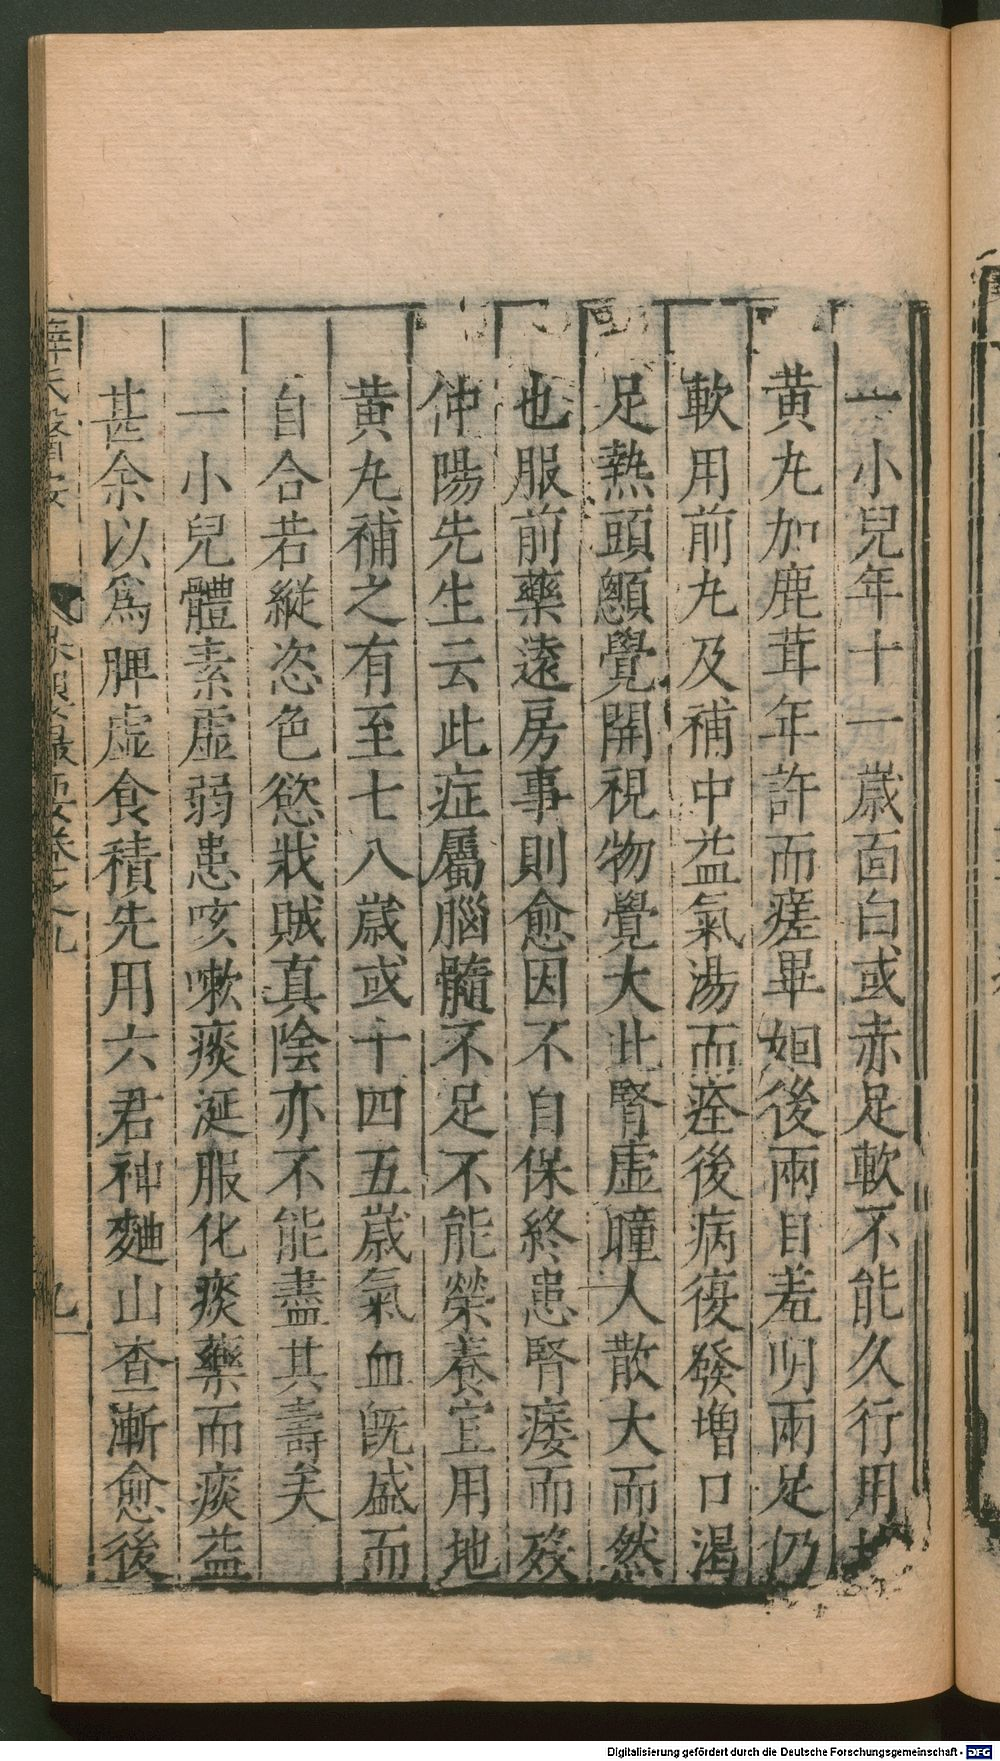 一小兒年十一歲面白或赤足軟不能久行用地
黄丸加鹿茸年許而瘥畢姻後兩目羞明兩足仍
軟用前丸及補中益氣湯而痊後病復發增口渴
足熱頭顱覺開視物覺大此腎虛瞳人散大而然
也服前藥遠房事則愈因不自保終患腎痿而歿
仲陽先生云此症屬腦髓不足不能榮養宜用地
黄丸補之有至七八歲或十四五歲氣血既盛而
自合若縱恣色慾戕賊真陰亦不能盡其壽矣
一小兒體素虛弱患咳嗽痰涎服化痰藥而痰益
甚余以爲脾虛食積先用六君神麯山查漸愈後
薛氏醫案
卷之九
九
Digitalisierung gefördert durch die Deutsche Forschungsgemeinschaft - DFG